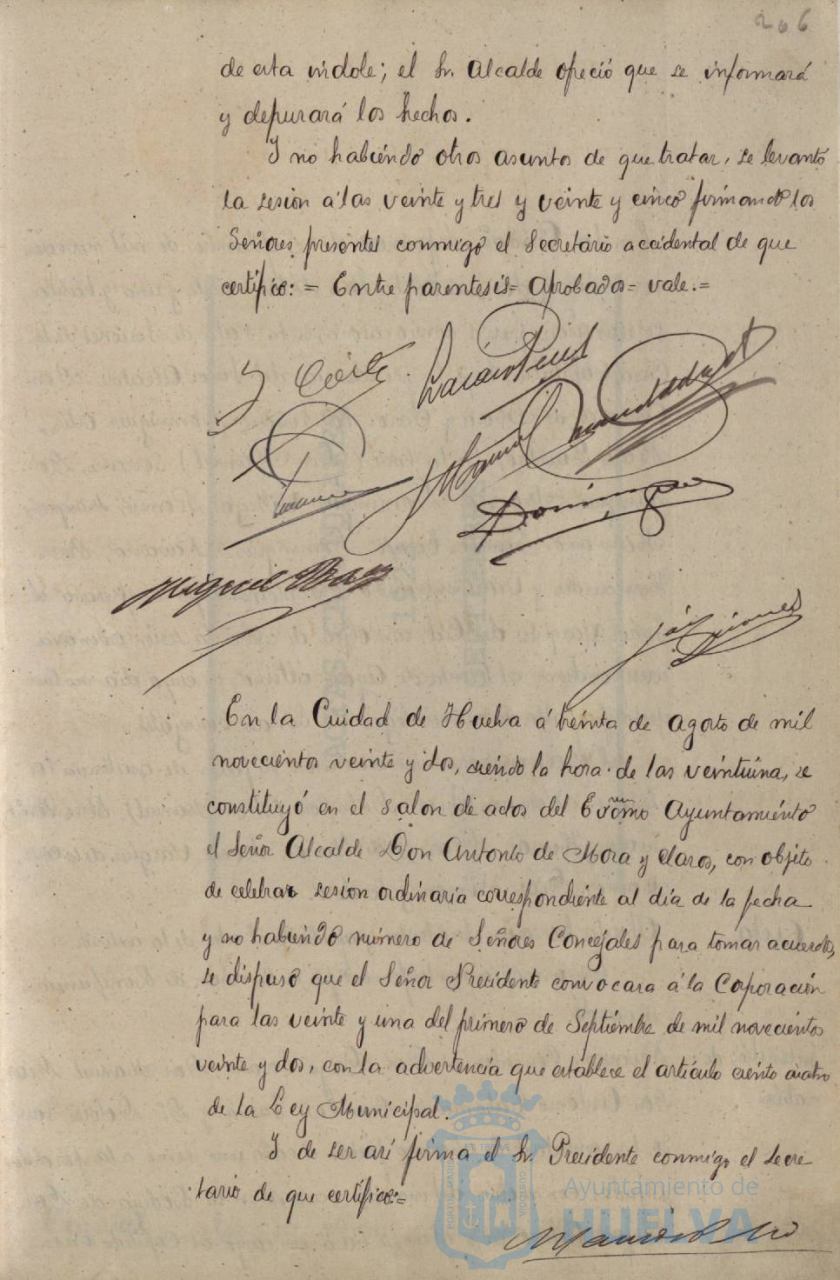 206
de esta indole; el Sr. Alcalde ofreció que se informará
y depurará los hechos.
Y no habiendo otros asuntos de que tratar, se levantó
la sesion a las veinte y tres y veinte y cinco firmando los
Señores presentes conmigo el Secretario accidental de que
certifico: = Entre parentesis = Aprobados = vale. =
Dominguez
Miguel Baez
En la Cuidad de Huelva á treinta de Agosto de mil
novecientos veinte y dos, siendo la hora de las veintiuna, se
constituyó en el salon de actos del Excmo Ayuntamiento
el Señor Alcalde Don Antonio de Mora y Claros, con objeto
de celebrar sesion ordinaria correspondiente al dia de la fecha
y no habiendo número de Señores Concejales para tomar acuerdos,
se dispuso que el Señor Presidente convocara á la Corporación
para las veinte y una del primero de Septiembre de mil novecientos
veinte y dos, con la advertencia que establece el artículo ciento cuatro
de la Ley Municipal.
Y de ser asi firma el Sr. Presidente conmigo el Secre
tario de que certifico: =
Ayuntamiento de
HUELVA